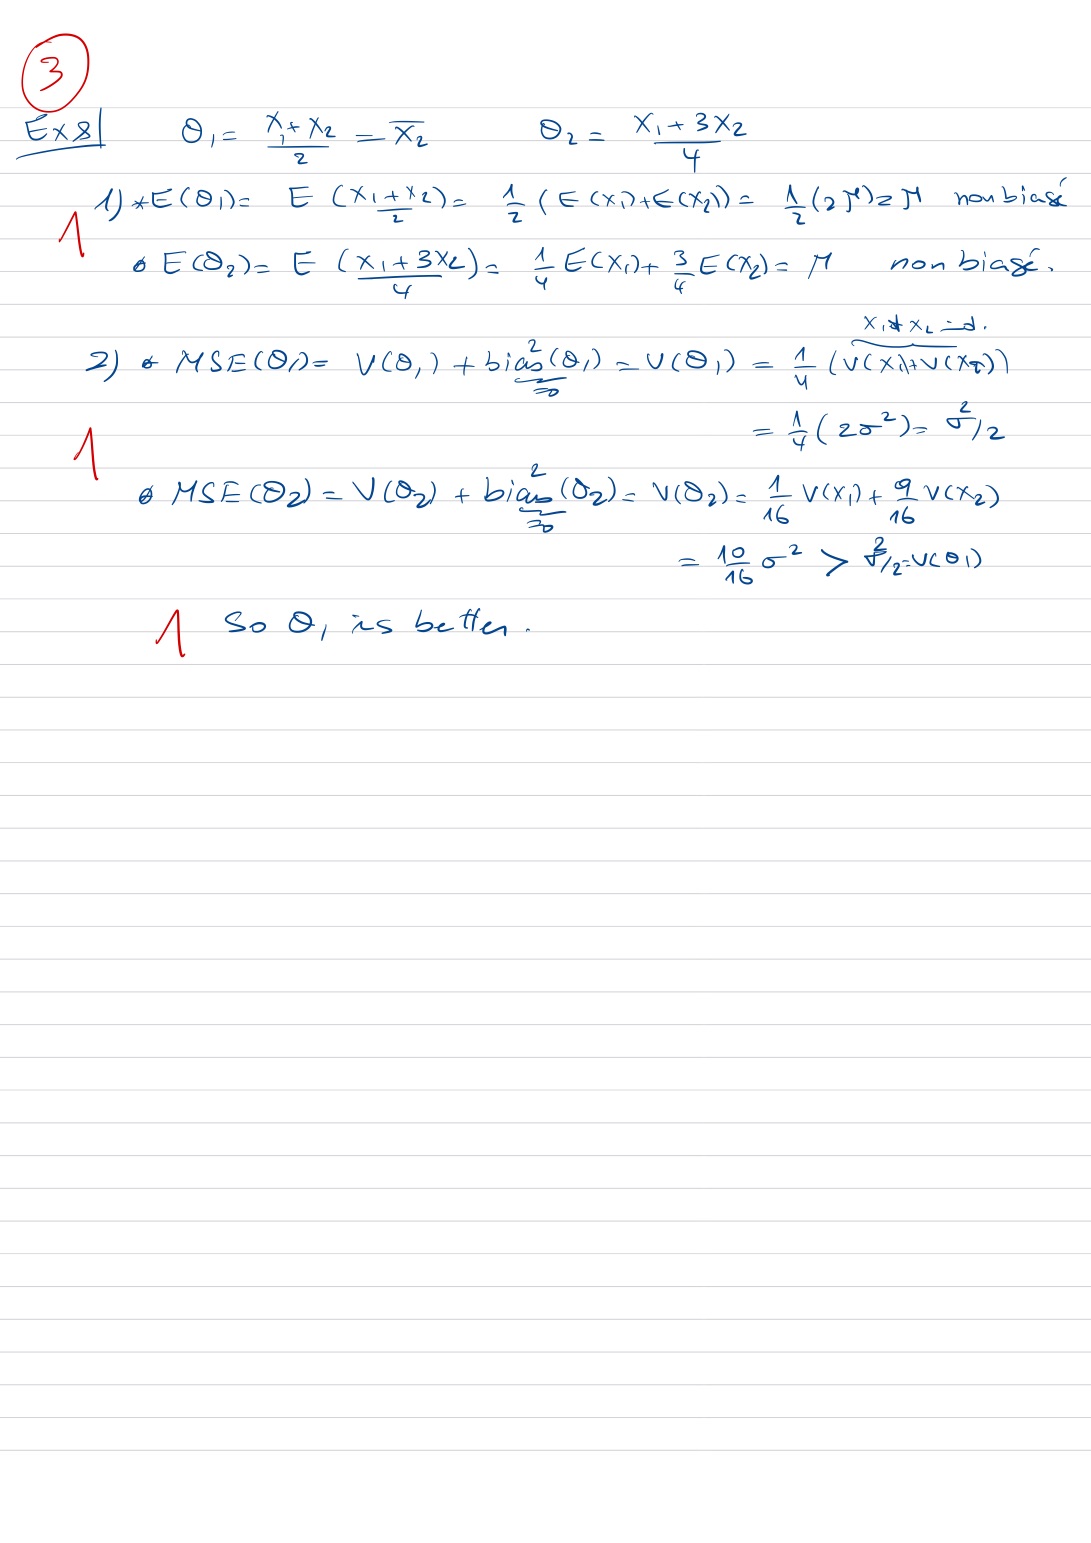 3
Ex8| θ₁ = (X₁ + X₂)/2 = X̄₂ θ₂ = (X₁ + 3X₂)/4
1) * E(θ₁) = E (X₁ + X₂)/2) = 1/2 (E(X₁) + E(X₂)) = 1/2 (2μ) = μ non biasé
1
• E(θ₂) = E (X₁ + 3X₂)/4) = 1/4 E(X₁) + 3/4 E(X₂) = μ non biasé.
X₁ & X₂ ind.
2) • MSE(θ₁) = V(θ₁) + bias²(θ₁) = V(θ₁) = 1/4 (V(X₁) + V(X₂))
=0
= 1/4 (2σ²) = σ²/2
1
• MSE(θ₂) = V(θ₂) + bias²(θ₂) = V(θ₂) = 1/16 V(X₁) + 9/16 V(X₂)
=0
= 10/16 σ² > σ²/2 = V(θ₁)
1 So θ₁ is better.